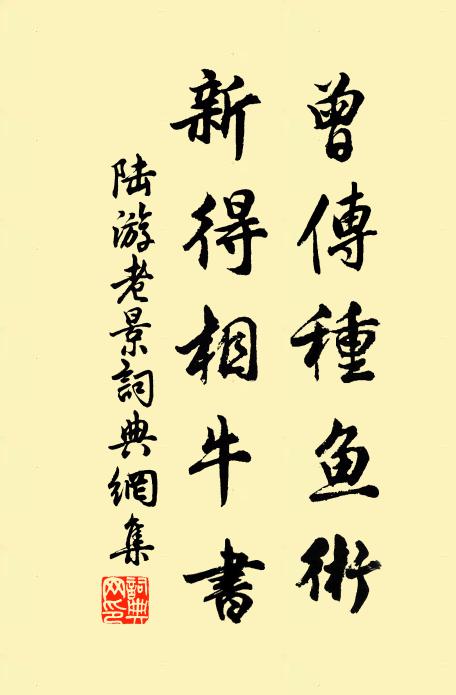 曾傳種魚術
新得相牛書
陸游老景詞典網集
詞典網印